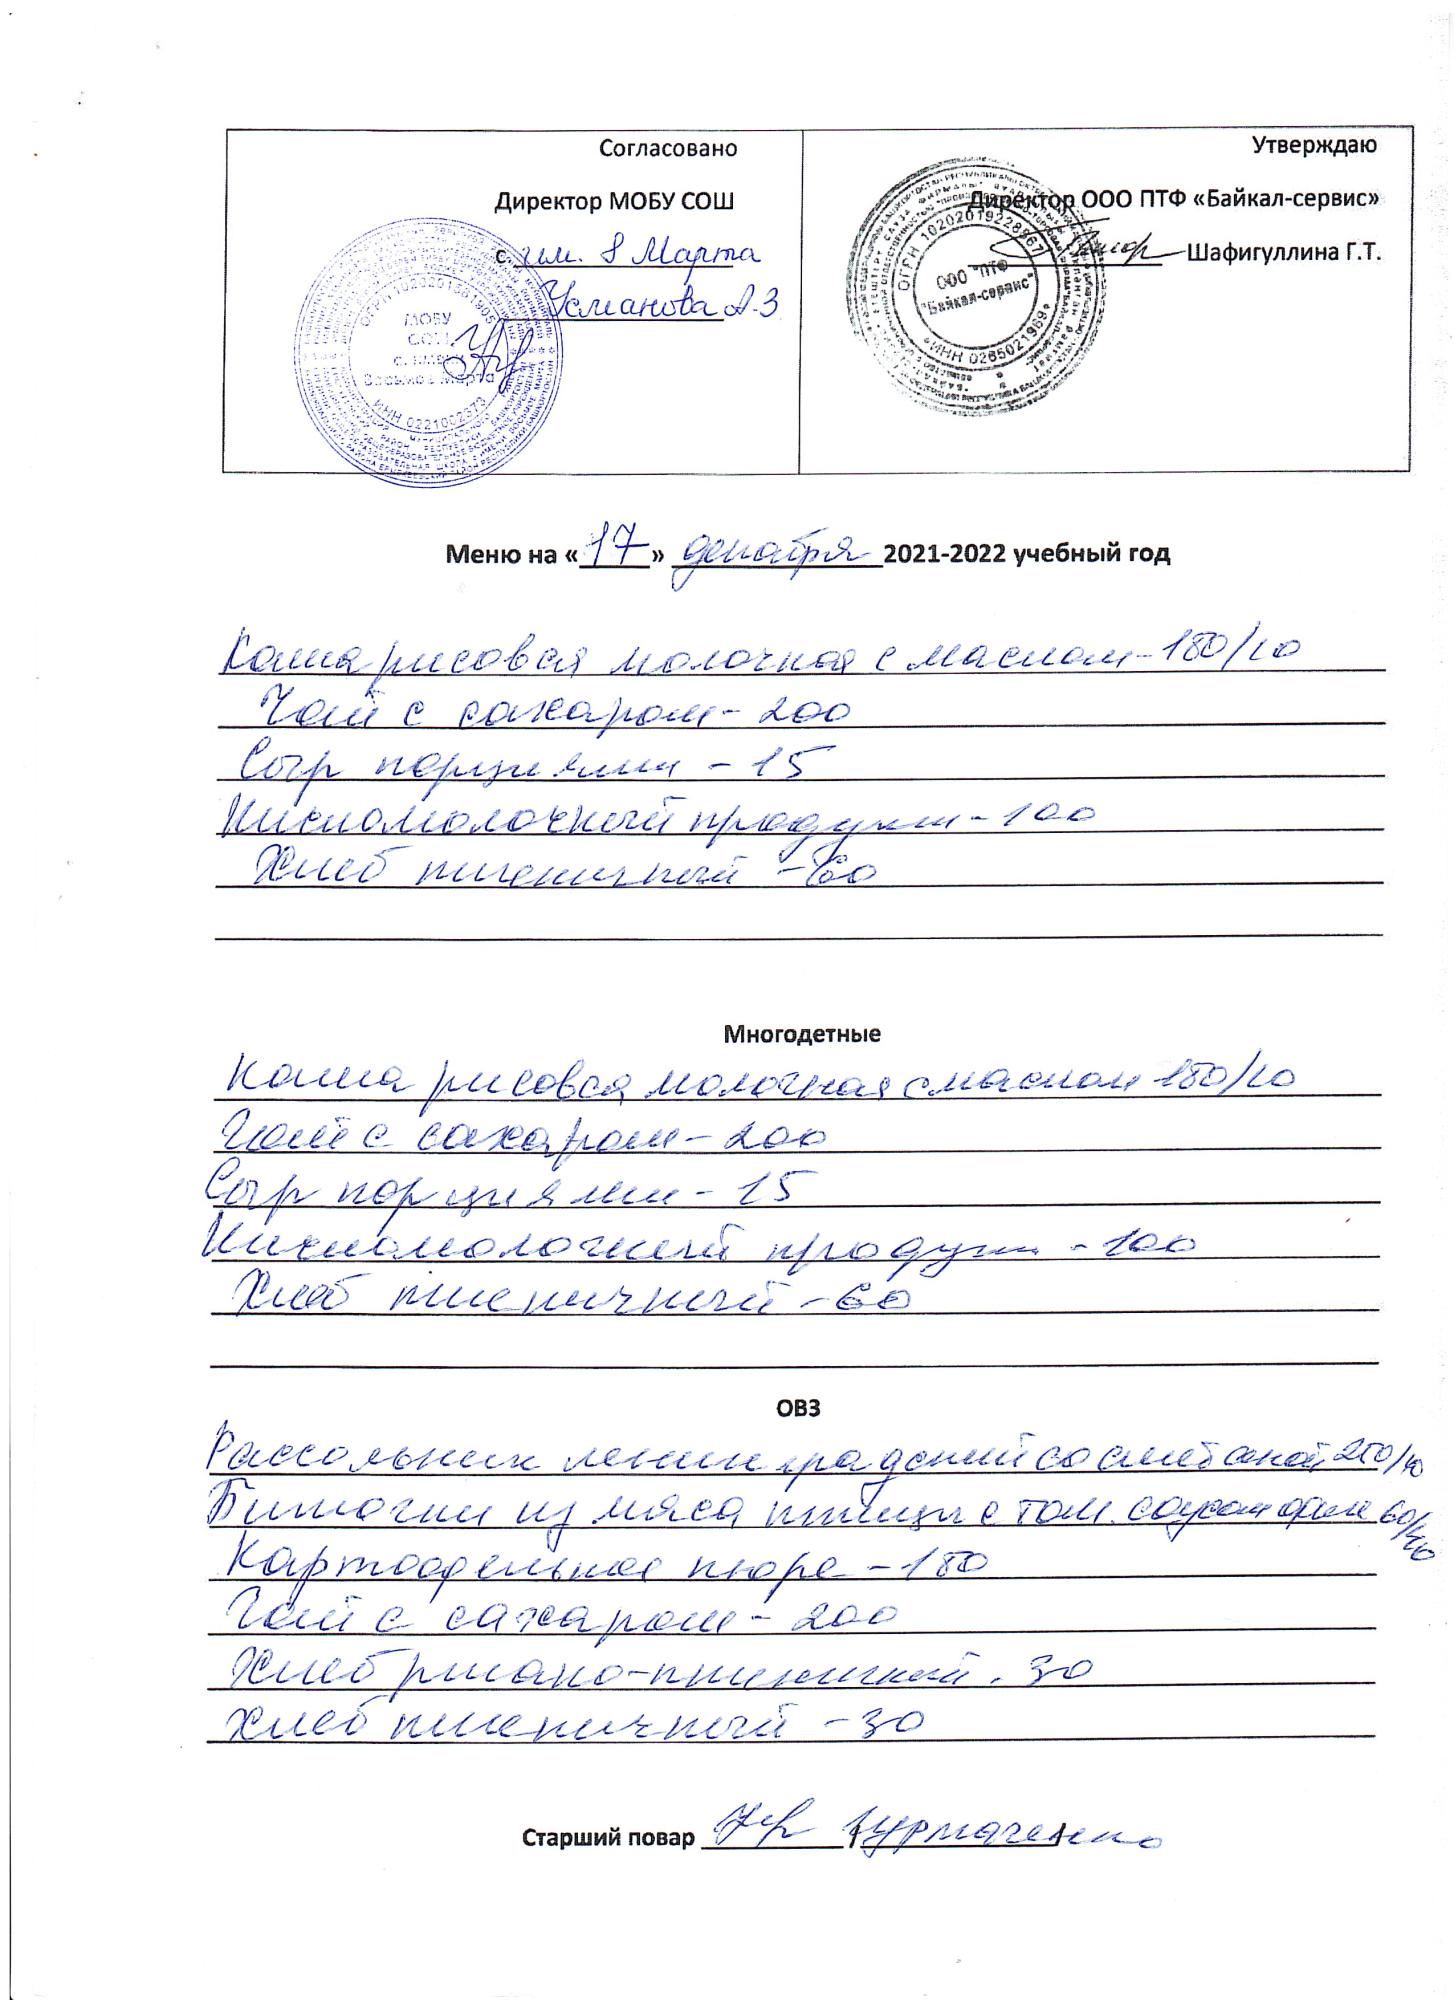 Согласовано
Директор МОБУ СОШ
с. им. 8 Марта
Усманова А.З
ОГРН 1020201881905
МОБУ
СОШ
с. имени
Восьмое Марта
ИНН 0221002373
Утверждаю
Директор ООО ПТФ «Байкал-сервис»
Шафигуллина Г.Т.
ОГРН 1020201922896
ООО "ПТФ
"Байкал-сервис"
ИНН 0265021969
Меню на «17» декабря 2021-2022 учебный год
Каша рисовая молочная с маслом-150/10
Чай с сахаром- 200
Сыр порциями - 15
Кисломолочный продукт - 100
Хлеб пшеничный - 60
Многодетные
Каша рисовая молочная с маслом 150/10
Чай с сахаром - 200
Сыр порциями - 15
Кисломолочный продукт - 100
Хлеб пшеничный - 60
ОВЗ
Рассольник ленинградский со сметаной 250/10
Биточки из мяса птицы с том. соусом 60/40
Картофельное пюре - 150
Чай с сахаром - 200
Хлеб ржано-пшеничный . 30
Хлеб пшеничный - 30
Старший повар